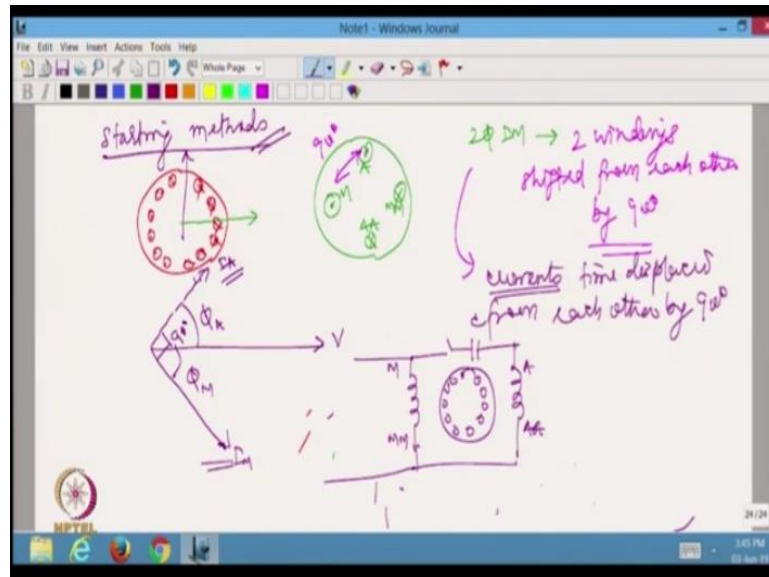 Note1 - Windows Journal
File Edit View Insert Actions Tools Help
Whole Page
B I
Starting methods
90°
A
M
MM
AA
2φ IM → 2 windings
shifted from each other
by 90°
currents time displaced
from each other by 90°
IA
φA
90°
V
φM
IM
M
A
MM
AA
24/24
NPTEL
3:45 PM
03-Jun-19